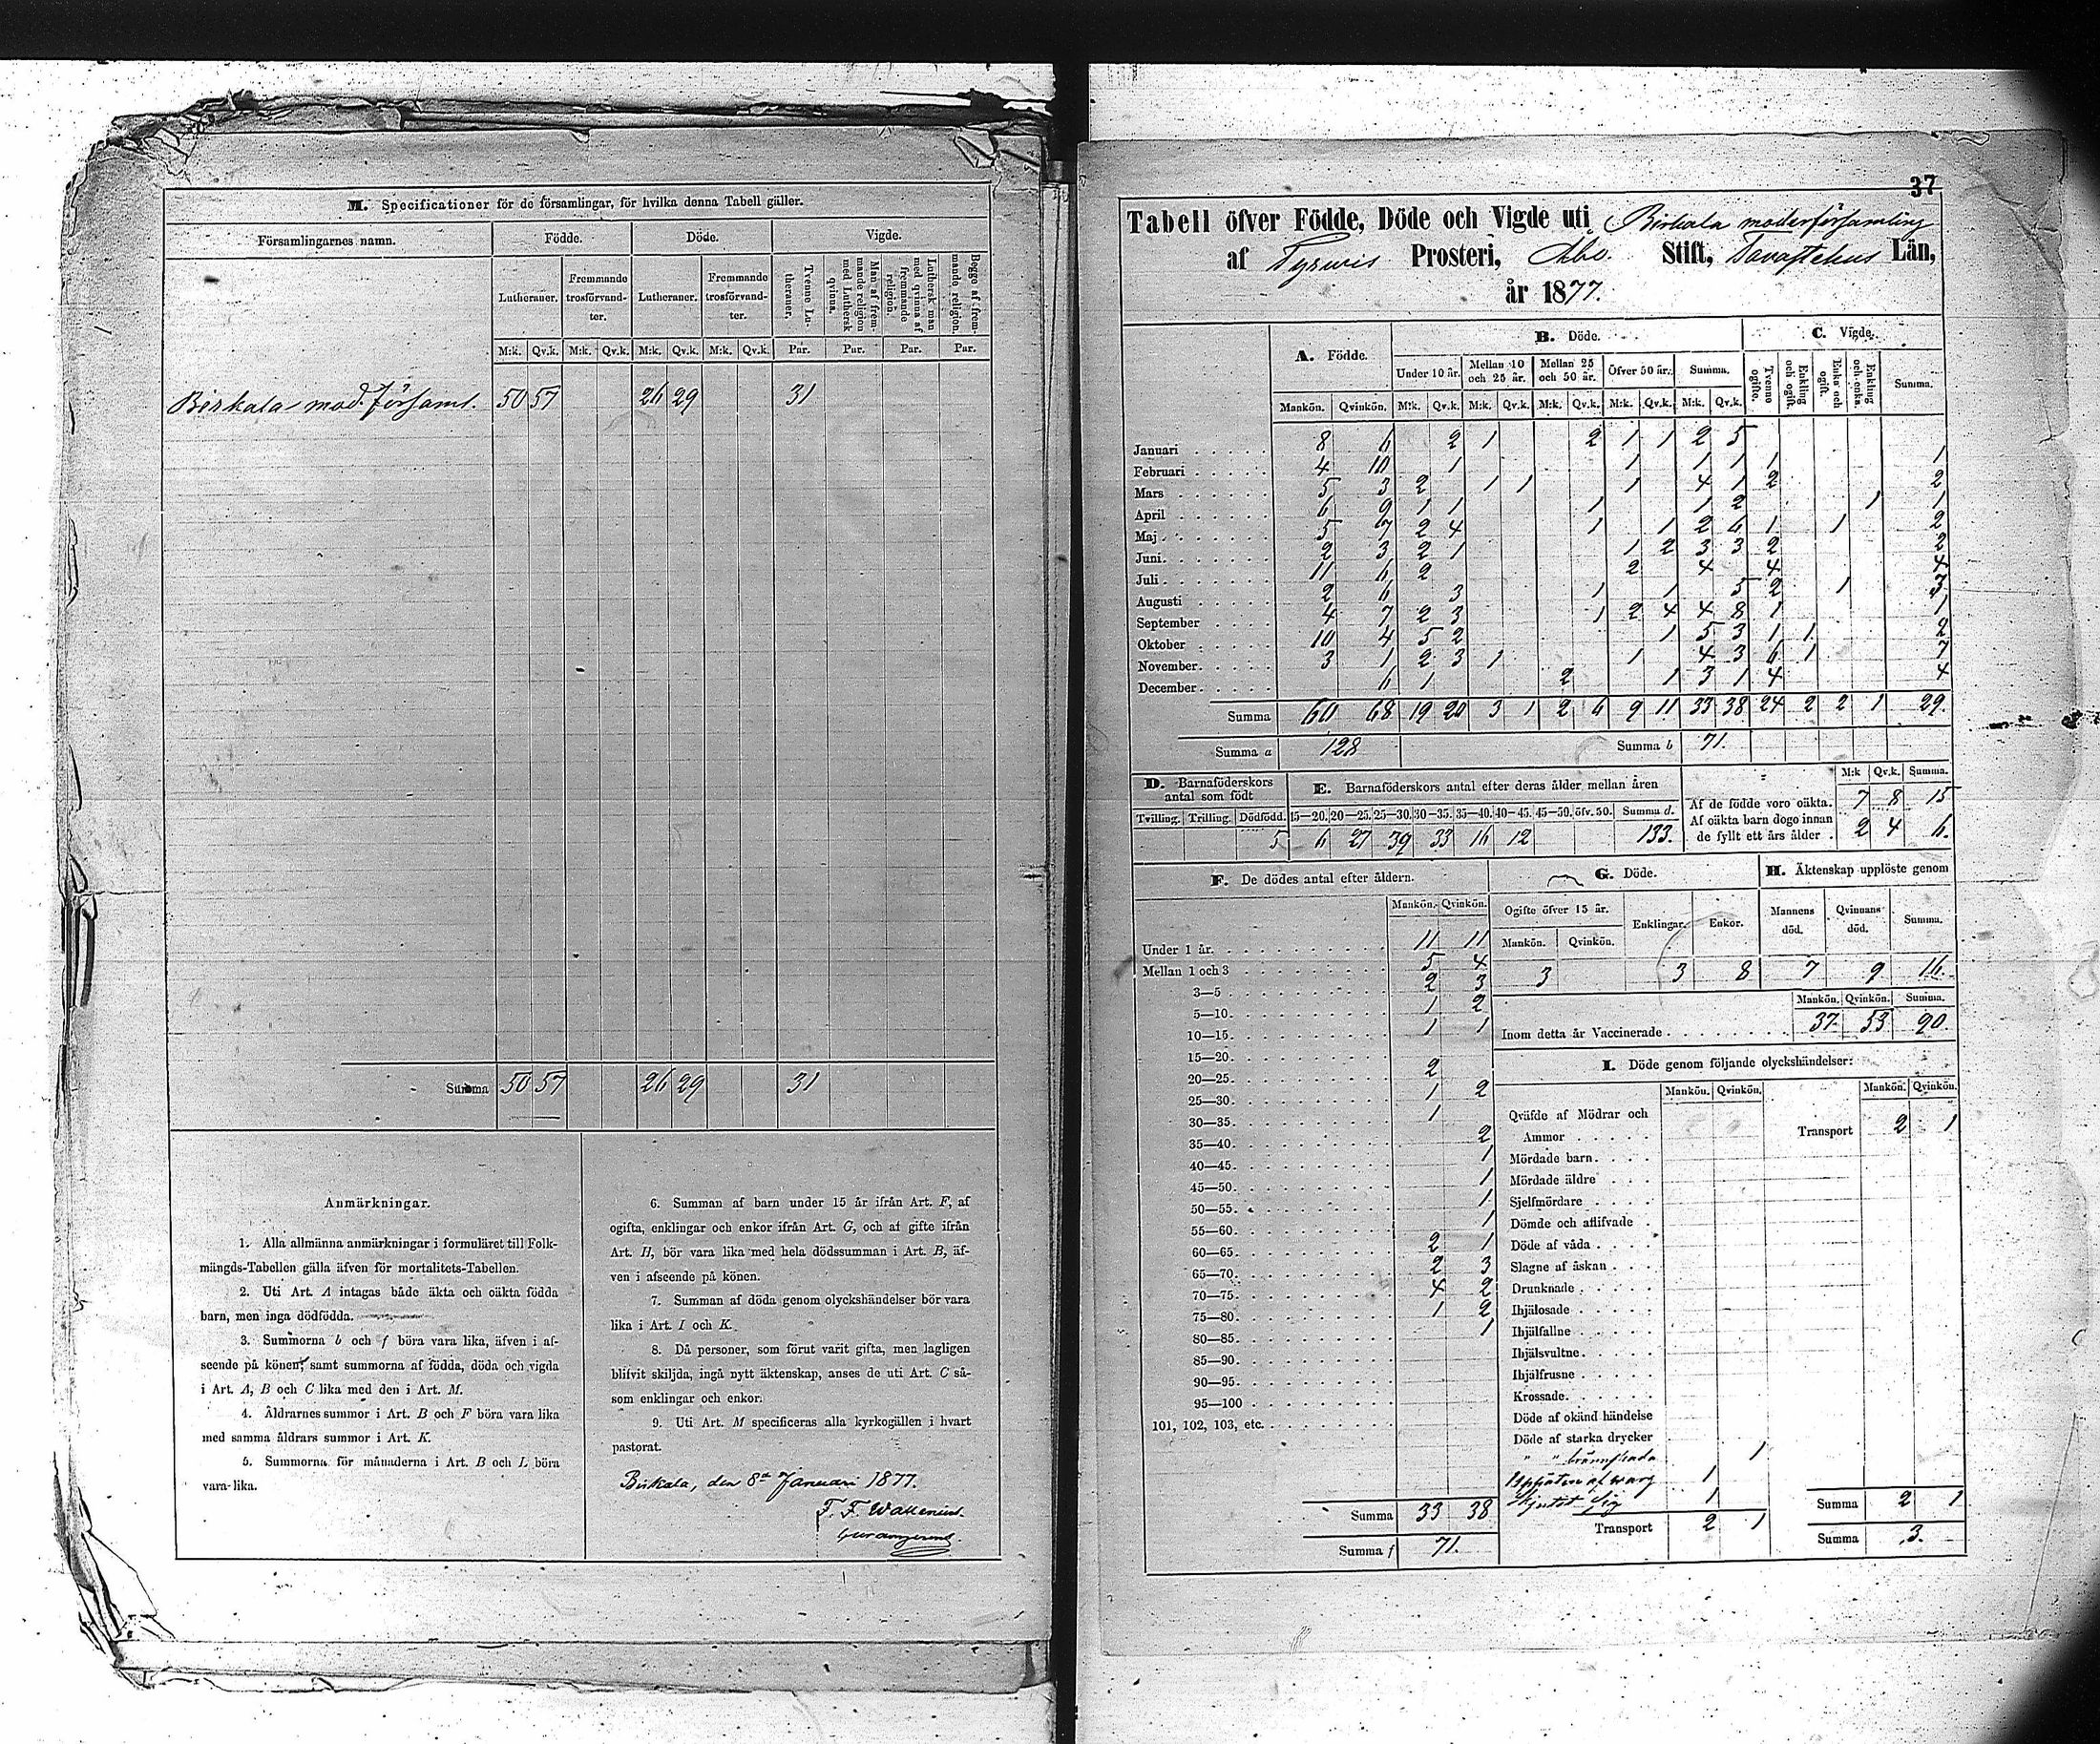 M. Specificationer för de församlingar, för hvilka denna Tabell gäller.
Församlingarnes namn. Födde. Döde. Vigde.
Lutheraner. Fremmande trosförvandter. Lutheraner. Fremmande trosförvandter. Tvenne Lutheraner. Man af fremmande religion med Luthersk qvinna. Luthersk man med qvinna af fremmande religion. Begge af fremmande religion.
M:k. Qv.k. M:k. Qv.k. M:k. Qv.k. M:k. Qv.k. Par. Par. Par. Par.
Birkala mod. församl. 50 57 26 29 31
Summa 50 57 26 29 31
Anmärkningar.
1. Alla allmänna anmärkningar i formuläret till Folk-
mängds-Tabellen gälla äfven för mortalitets-Tabellen.
2. Uti Art. A intagas både äkta och oäkta födda
barn, men inga dödfödda.
3. Summorna b och f böra vara lika, äfven i af-
seende på könen, samt summorna af födda, döda och vigda
i Art. A, B och C lika med den i Art. M.
4. Åldrarnes summor i Art. B och F böra vara lika
med samma åldrars summor i Art. K.
5. Summorna för månaderna i Art. B och L böra
vara lika.
6. Summan af barn under 15 år ifrån Art. F, af
ogifta, enklingar och enkor ifrån Art. G, och af gifte ifrån
Art. H, bör vara lika med hela dödssumman i Art. B, äf-
ven i afseende på könen.
7. Summan af döda genom olyckshändelser bör vara
lika i Art. I och K.
8. Då personer, som förut varit gifta, men lagligen
blifvit skiljda, ingå nytt äktenskap, anses de uti Art. C så-
som enklingar och enkor.
9. Uti Art. M specificeras alla kyrkogällen i hvart
pastorat.
Birkala, den 8de Januari 1877.
F. F. Wallenius.
37
Tabell öfver Födde, Döde och Vigde uti Birkala moderförsamling
af Tyrwis Prosteri, Åbo Stift, Tavastehus Län,
år 1877.
A. Födde. B. Döde. C. Vigde.
Under 10 år. Mellan 10 och 25 år. Mellan 25 och 50 år. Öfver 50 år. Summa. Tvenne ogifte. Enkling och ogift. Enka och ogift. Enkling och enka. Summa.
Mankön. Qvinkön. M:k. Qv.k. M:k. Qv.k. M:k. Qv.k. M:k. Qv.k. M:k. Qv.k.
Januari 8 6 2 1 2 1 1 2 5
Februari 4 10 1 1 1 1 1 1
Mars 5 3 2 1 1 1 4 1 2 2
April 6 9 1 1 1 1 2 1 1
Maj 5 7 2 4 1 1 2 6 1 1 2
Juni 2 3 2 1 1 2 3 3 2 2
Juli 11 6 2 2 4 4 4
Augusti 2 6 3 1 1 5 2 1 3
September 4 7 2 3 1 2 4 4 8 1 1
Oktober 10 4 5 2 1 5 3 1 1 2
November 3 1 2 3 1 1 4 3 6 1 7
December 6 1 2 1 3 1 4 4
Summa 60 68 19 20 3 1 2 6 9 11 33 38 24 2 2 1 29
Summa a 128 Summa b 71.
D. Barnaföderskors antal som födt
E. Barnaföderskors antal efter deras ålder mellan åren
M:k Qv.k. Summa.
Tvilling. Trilling. Dödfödd. 15—20. 20—25. 25—30. 30—35. 35—40. 40—45. 45—50. öfv. 50. Summa d.
5 6 27 39 33 16 12 133.
Af de födde voro oäkta. 7 8 15
Af oäkta barn dogo innan
de fyllt ett års ålder . 2 4 6.
F. De dödes antal efter åldern.
Mankön. Qvinkön.
Under 1 år. 11 11
Mellan 1 och 3 5 4
3—5 2 3
5—10. 1 2
10—15. 1 1
15—20.
20—25. 2
25—30. 1 2
30—35. 1
35—40. 2
40—45. 1
45—50. 1
50—55. 1
55—60. 1
60—65. 2 1
65—70. 2 3
70—75. 4 2
75—80. 1 2
80—85. 1
85—90.
90—95.
95—100
101, 102, 103, etc.
Summa 33 38
Summa f 71.
G. Döde.
Ogifte öfver 15 år. Enklingar. Enkor.
Mankön. Qvinkön.
3 3 8
H. Äktenskap upplöste genom
Mannens död. Qvinnans död. Summa.
7 9 16.
Mankön. Qvinkön. Summa.
Inom detta år Vaccinerade 37. 53 90.
I. Döde genom följande olyckshändelser:
Mankön. Qvinkön. Mankön. Qvinkön.
Qväfde af Mödrar och
Ammor
Transport 2 1
Mördade barn
Mördade äldre
Sjelfmördare
Dömde och aflifvade
Döde af våda
Slagne af åskan
Drunknade
Ihjälosade
Ihjälfallne
Ihjälsvultne
Ihjälfrusne
Krossade
Döde af okänd händelse
Döde af starka drycker
" " brännskada 1
Uppäten af warg 1
Skjutit sig 1
Transport 2 1
Summa 2 1
Summa 3.